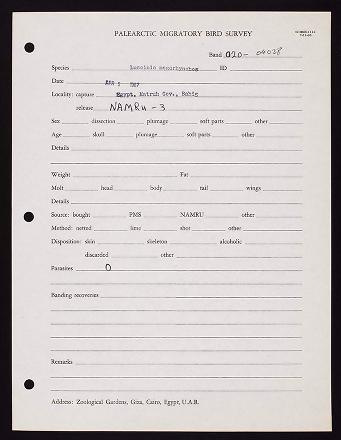 PALEARCTIC MIGRATORY BIRD SURVEY
Band 020- 04028
Species Luscinia megarhynchos ID
Date APR 1967
Locality: capture Egypt, Matruh Gov., Bahig
release NAMRU-3
Sex dissection plumage soft parts other
Age skull plumage soft parts other
Details
Weight Fat
Molt head body tail wings
Details
Source: bought PMS NAMRU other
Method: netted lime shot other
Disposition: skin skeleton alcoholic
discarded other
Parasites 0
Banding recoveries
Remarks
Address: Zoological Gardens, Giza, Cairo, Egypt, U.A.R.